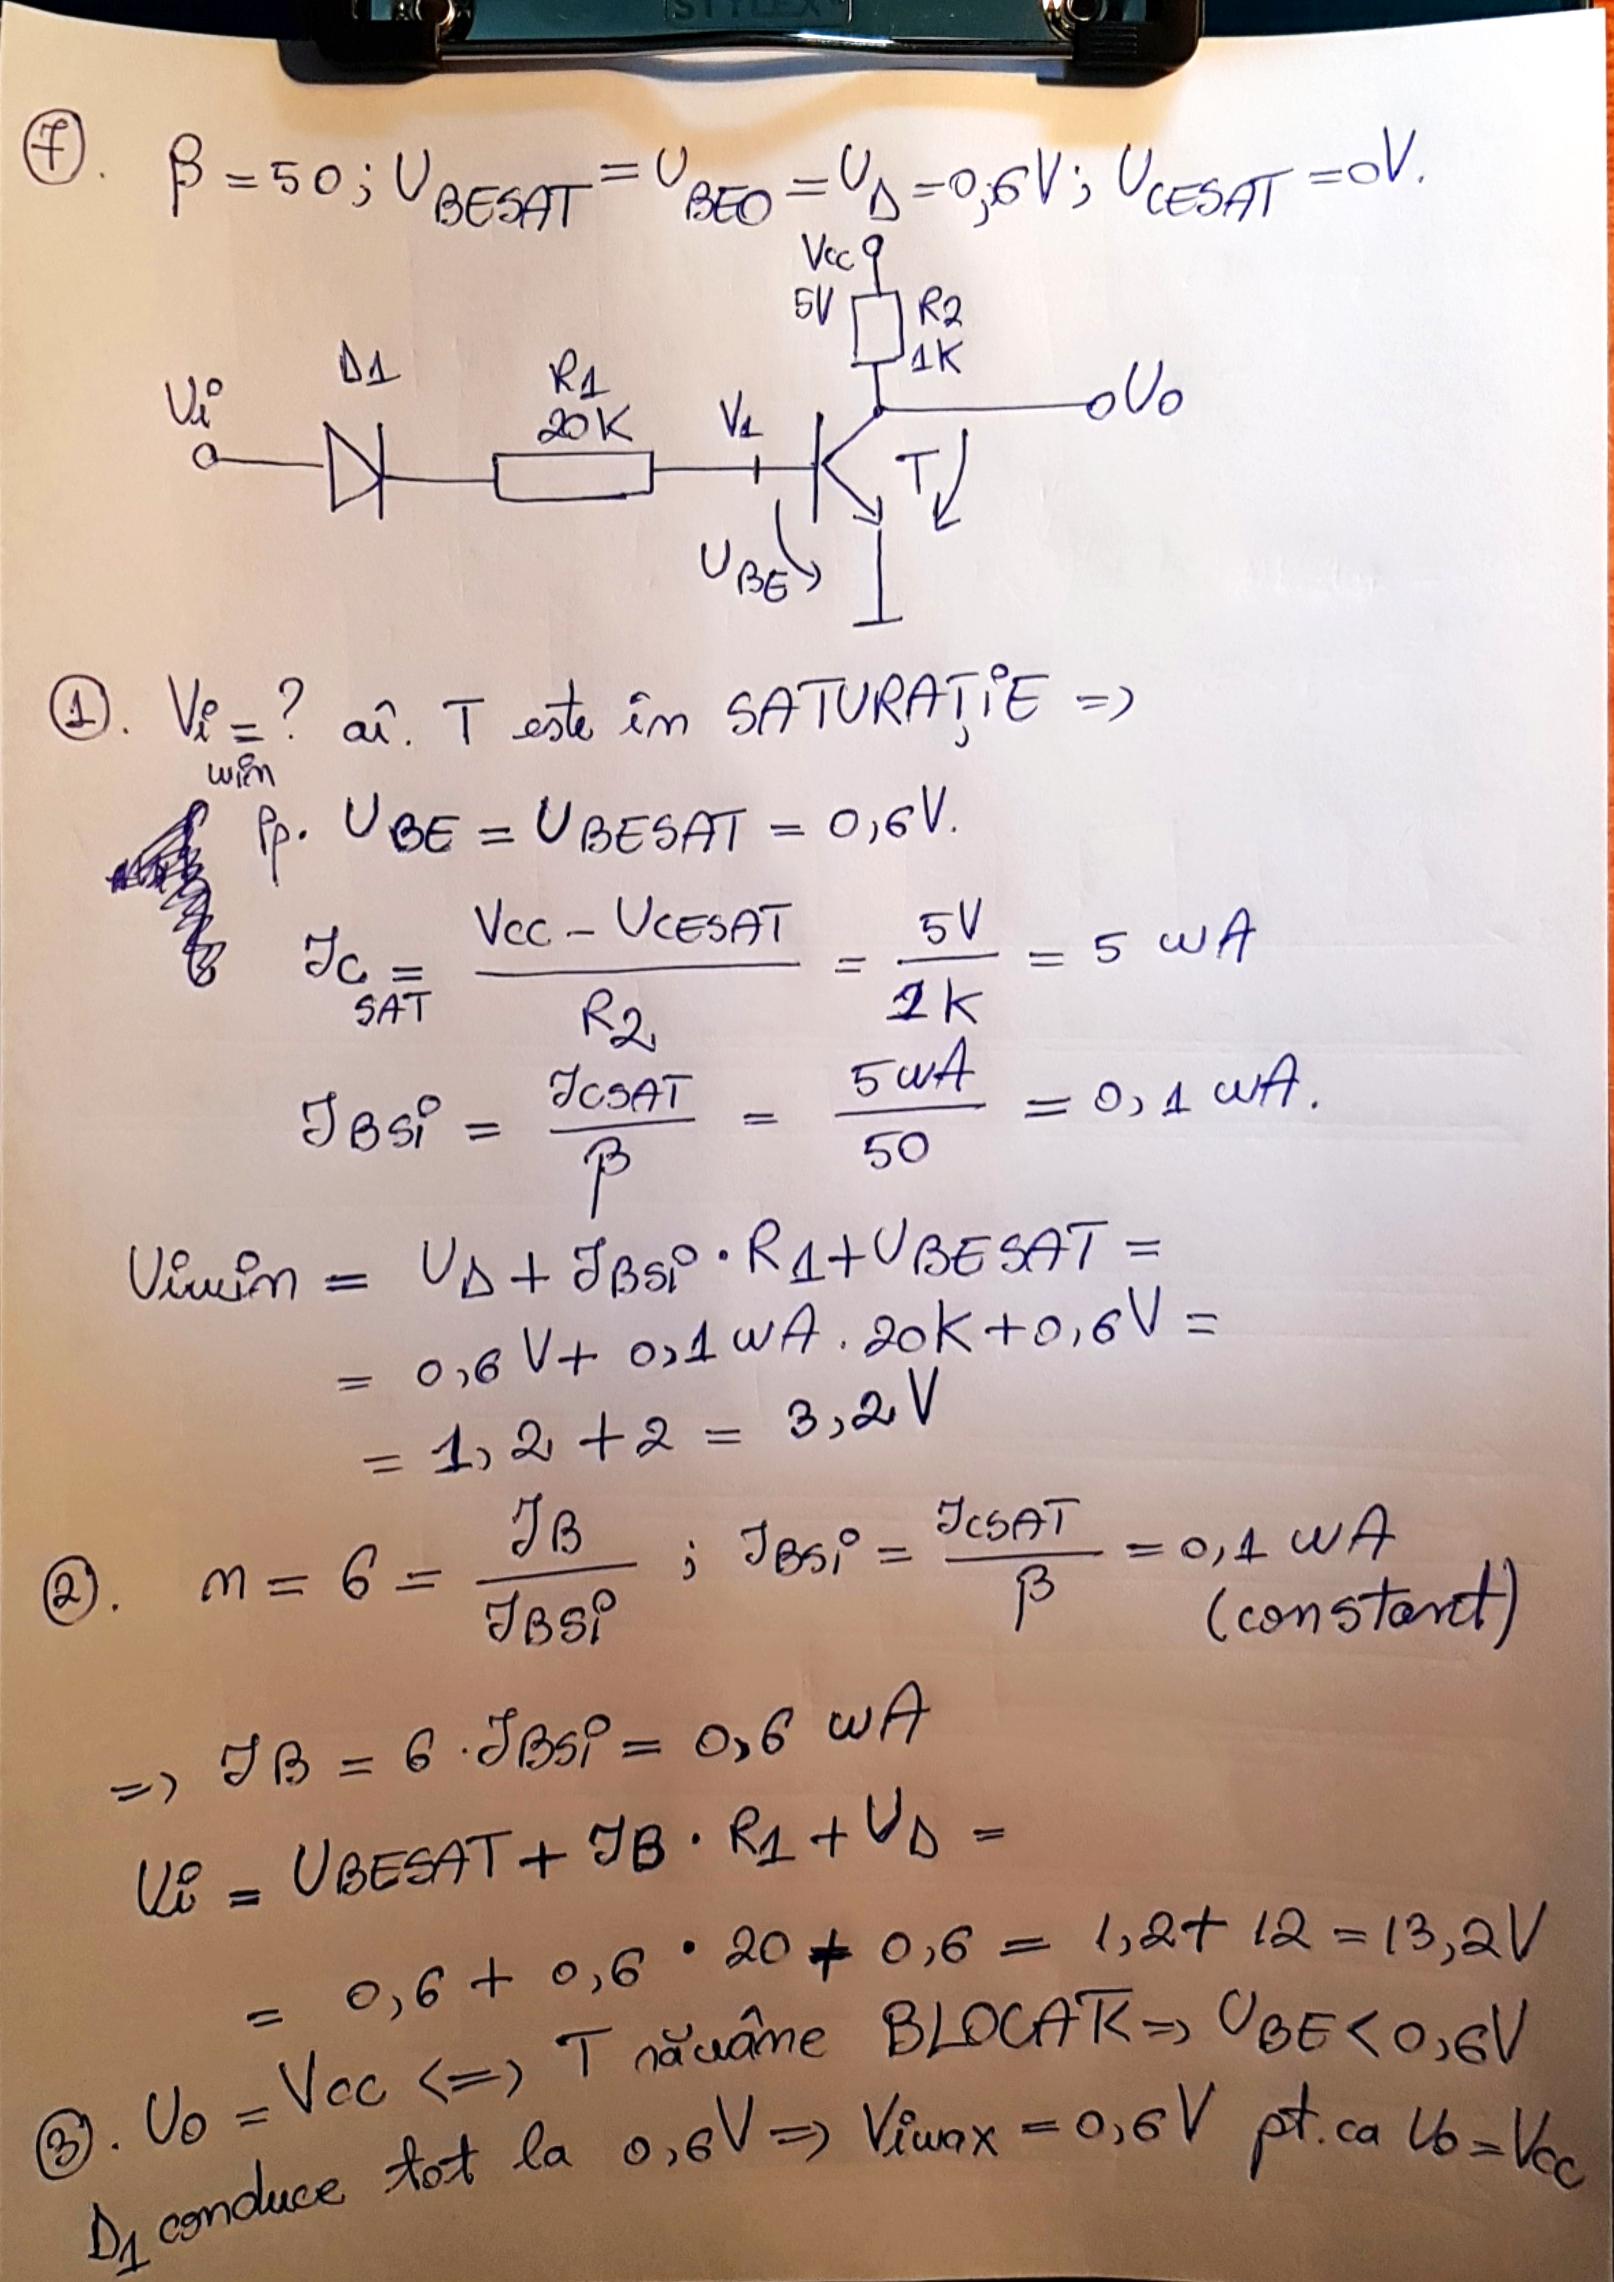 STYLEX
7. β = 50; UBESAT = UBEO = UD = 0,6V; UCESAT = 0V.
Vcc
5V
R2
1K
D1
R1
20K
Vi
V1
Uo
T
UBE
1. Vi min = ? aî. T este în SATURAȚiE =>
Pp. UBE = UBESAT = 0,6V.
IC SAT = (VCC - UCESAT) / R2 = 5V / 1K = 5 mA
IBSi = ICSAT / β = 5mA / 50 = 0,1 mA.
Uimin = UD + IBSi · R1 + UBESAT =
= 0,6V + 0,1mA . 20K + 0,6V =
= 1,2 + 2 = 3,2V
2. n = 6 = IB / IBSi ; IBSi = ICSAT / β = 0,1 mA
(constant)
=> IB = 6 · IBSi = 0,6 mA
Ui = UBESAT + IB · R1 + UD =
= 0,6 + 0,6 · 20 + 0,6 = 1,2 + 12 = 13,2V
3. Uo = Vcc <=> T rămâne BLOCAT => UBE < 0,6V
D1 conduce tot la 0,6V => Vimax = 0,6V pt. ca Uo = Vcc